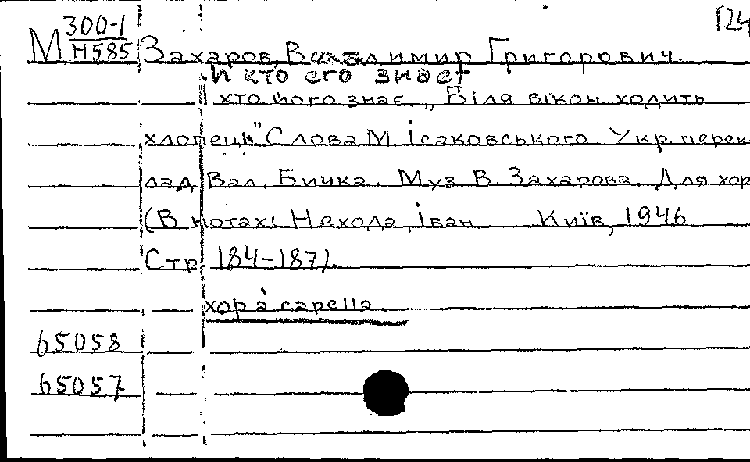 [24
М 300-1
Н585
Захаров, Володимир Григорович.
И кто его знает
І хто його знає. „Біля вікон ходить
хлопець". Слова М. Ісаковського. Укр. перек
лад Вал. Бичка. Муз. В. Захарова. Для хор
(В нотах: Находа, Іван Київ, 1946
Стр. 184-187).
хор à capella
65058
65057